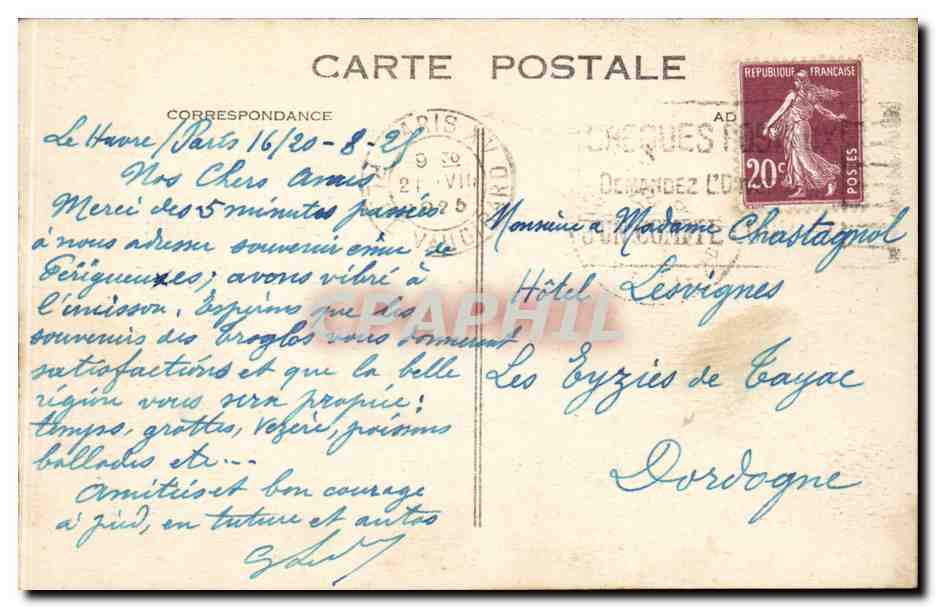 CARTE POSTALE
CORRESPONDANCE
AD
Le Havre/Paris 16/20-8-25
Nos Chers Amis
Merci des 5 minutes passées
à nous adresser souvenir émue de
Périgueuxes; avons vibré à
l'unisson. Espérons que des
souvenirs des Troglos vous donneront
satisfactions et que la belle
région vous sera propice:
temps, grottes, Vezère, poissons
ballades etc...
Amitiés et bon courage
à pied, en tuture et autos
PARIS XV
9 30
21 VII
1925
R. DE VAUGIRARD
REPUBLIQUE FRANÇAISE
20c
POSTES
DEMANDEZ L'D
Monsieur & Madame Chastagnol
Hôtel Lesvignes
Les Eyzies de Tayac
Dordogne
CPAPHIL